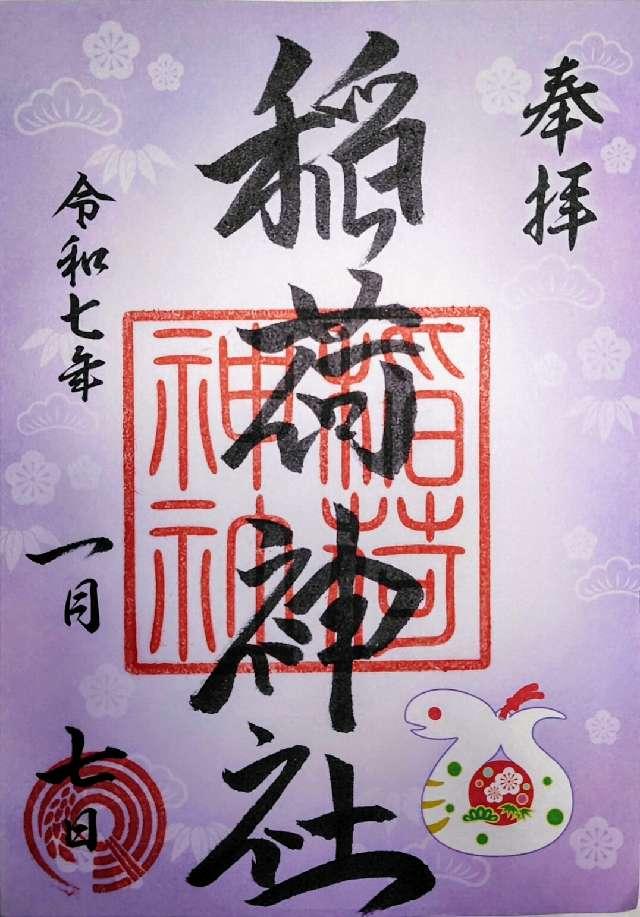 奉拝
稲荷神社
稲荷
神社
令和七年
一月
七日